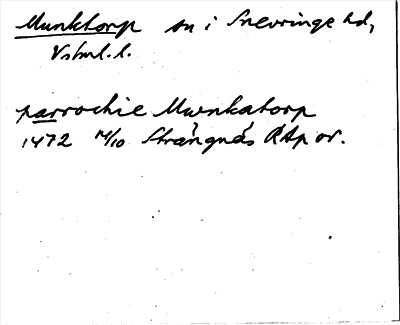 Munktorp sn i Snevringe hd,
Vstml. l.
parrochie Munkatorp
1472 14/10 Strängnäs RAp or.